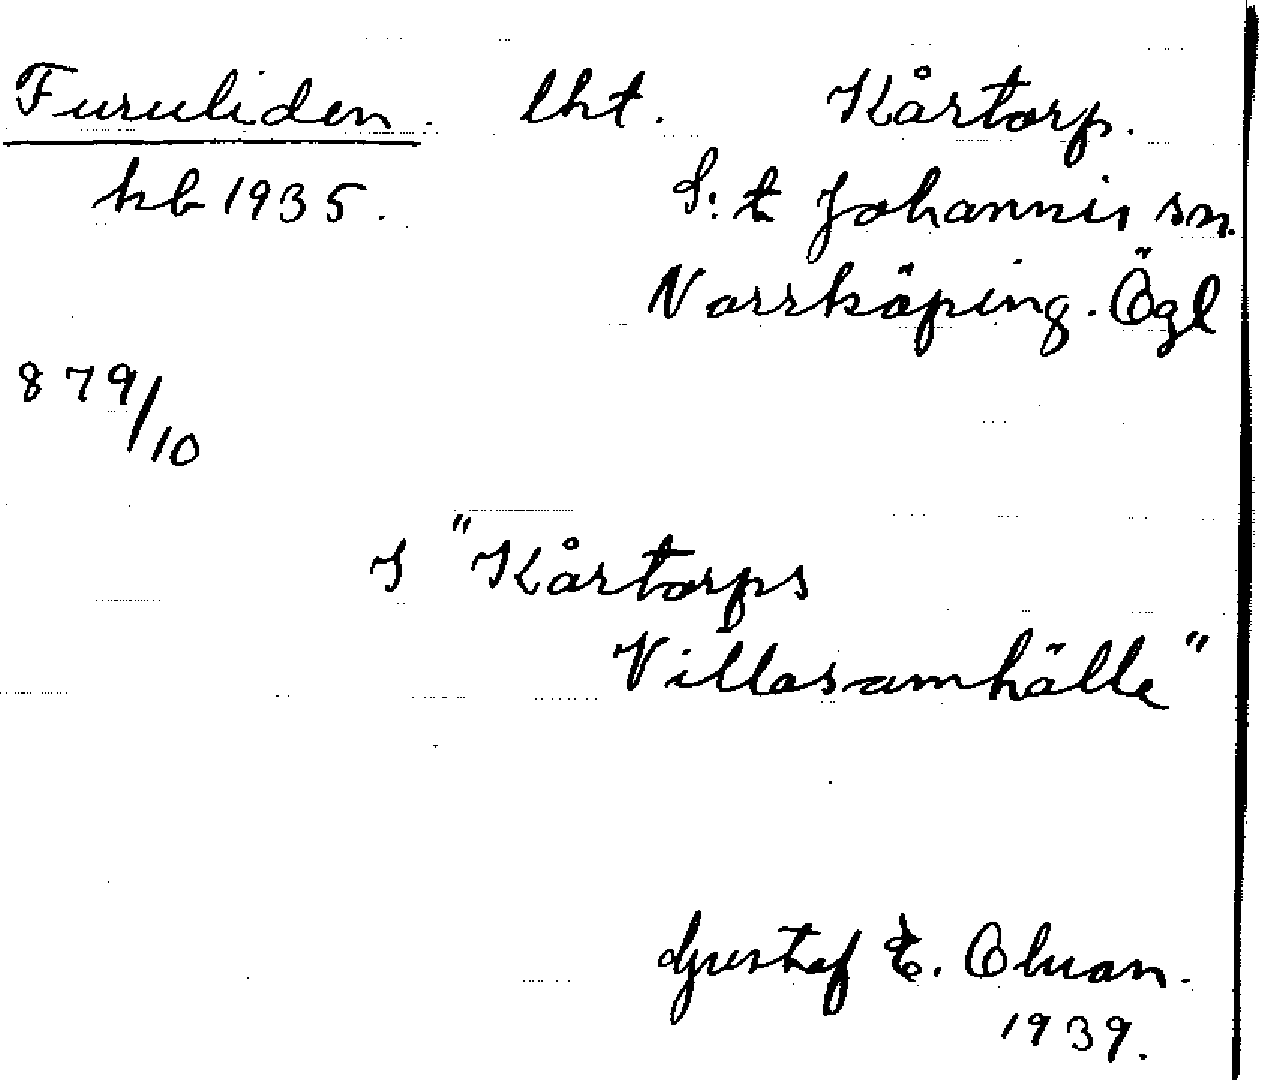 Furuliden. lht. Kårtorp.
hb 1935. S:t Johannis sn.
Norrköping. Ögl
879/10
I "Kårtorps
Villasamhälle"
Gustaf E. Olsson.
1939.